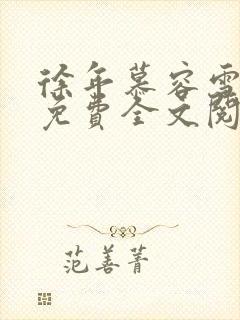 徐年慕容雪
免费全文阅
范善菁